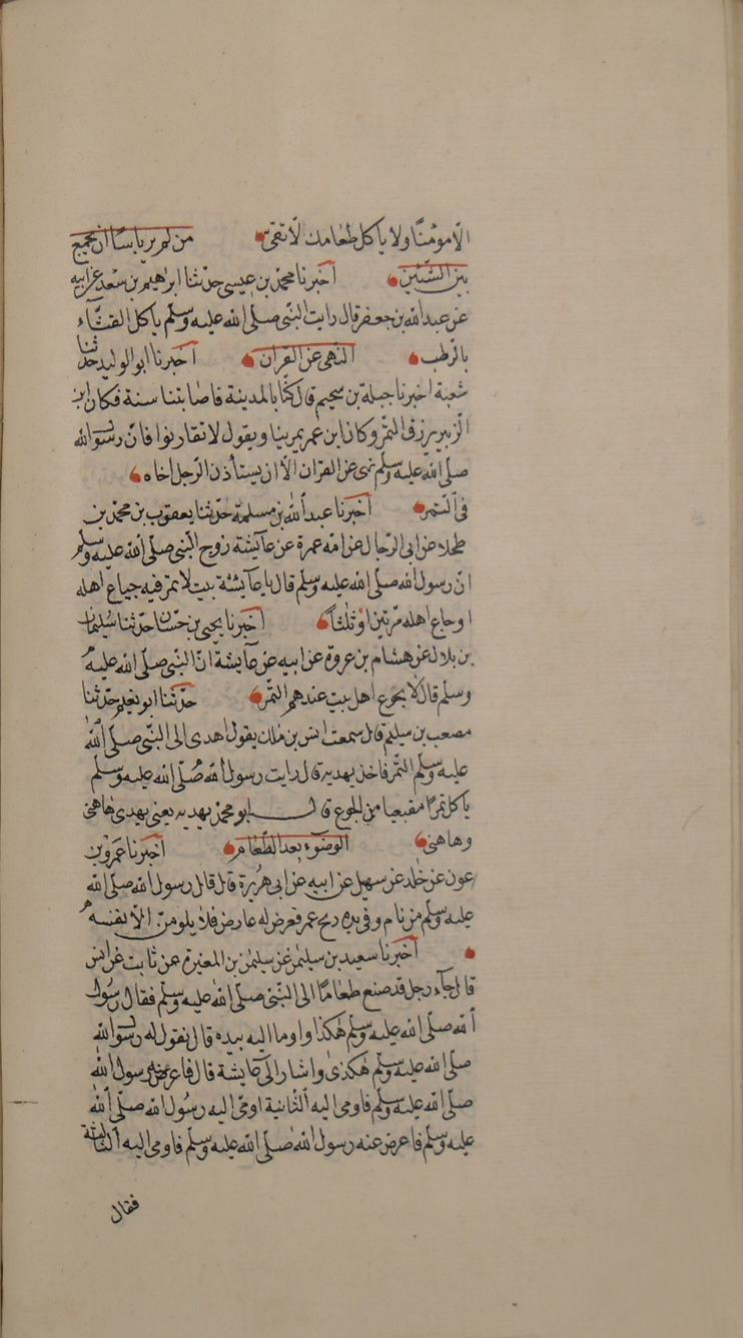 الا مومنا ولا ياكل طعامك الا تقى من لم ير باسا ان يجمع
بين الشيئين اخبرنا محمد بن عيسى حدثنا ابرهيم بن سعد عن ابيه
عن عبد الله بن جعفر قال رايت النبى صلى الله عليه وسلم ياكل القثاء
بالرطب النهى عن القران اخبرنا ابو الوليد حدثنا
شعبة اخبرنا جبلة بن سحيم قال كنا بالمدينة فاصابتنا سنة فكان ابن
الزبير يرزق التمر وكان ابن عمر يمر بنا ويقول لا تقارنوا فان رسول الله
صلى الله عليه وسلم نهى عن القران الا ان يستأذن الرجل اخاه
فى التمر اخبرنا عبد الله بن مسلمة حدثنا يعقوب بن محمد بن
طحلا عن ابى الرجال عن امه عمرة عن عايشة زوج النبى صلى الله عليه وسلم
ان رسول الله صلى الله عليه وسلم قال يا عايشة بيت لا تمر فيه جياع اهله
او جاع اهله مرتين او ثلثا اخبرنا يحيى بن حسان حدثنا سليمان
بن بلال عن هشام بن عروة عن ابيه عن عايشة ان النبى صلى الله عليه
وسلم قال لا يجوع اهل بيت عندهم التمر حدثنا ابو نعيم حدثنا
مصعب بن سليم قال سمعت انس بن ملك يقول اهدى الى النبى صلى الله
عليه وسلم التمر فاخذ يهديه قال رايت رسول الله صلى الله عليه وسلم
ياكل تمرا مقعيا من الجوع قال ابو محمد يهديه يعنى يهدى هاهنى
وهاهنى الوضوء بعد الطعام اخبرنا عمرو بن
عون عن خلد عن سهيل عن ابيه عن ابى هريرة قال قال رسول الله صلى الله
عليه وسلم من نام وفى يده ريح غمر فعرض له عارض فلا يلومن الا نفسه
اخبرنا سعيد بن سليمن عن سليمن بن المغيرة عن ثابت عن انس
قال جآء رجل قد صنع طعاما الى النبى صلى الله عليه وسلم فقال رسول
الله صلى الله عليه وسلم هكذا واوما اليه بيده قال نقول له رسول الله
صلى الله عليه وسلم هكذى واشار الى عايشة قال فاعرض رسول الله
صلى الله عليه وسلم فاومى اليه الثانية اومى اليه رسول الله صلى الله
عليه وسلم فاعرض عنه رسول الله صلى الله عليه وسلم فاومى اليه الثالثة
فقال